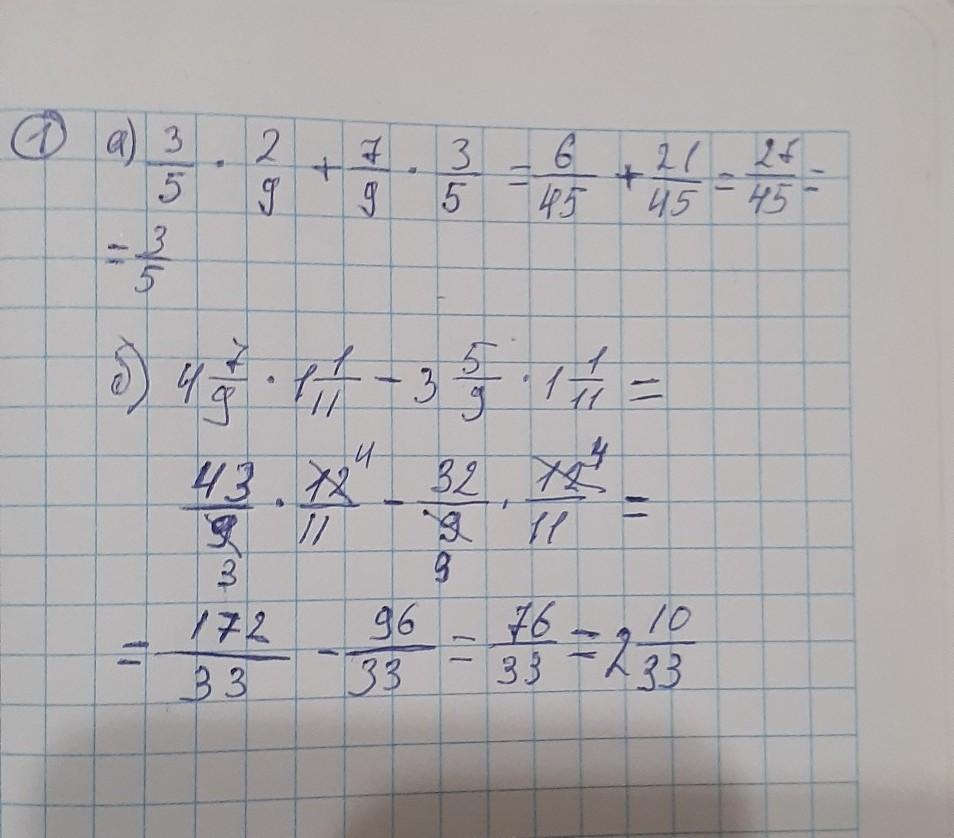 ① а) 3/5 · 2/9 + 7/9 · 3/5 = 6/45 + 21/45 = 27/45 =
= 3/5
б) 4 7/9 · 1 1/11 - 3 5/9 · 1 1/11 =
43/9 3 · 12/11 4 - 32/9 3 · 12/11 4 =
= 172/33 - 96/33 = 76/33 = 2 10/33